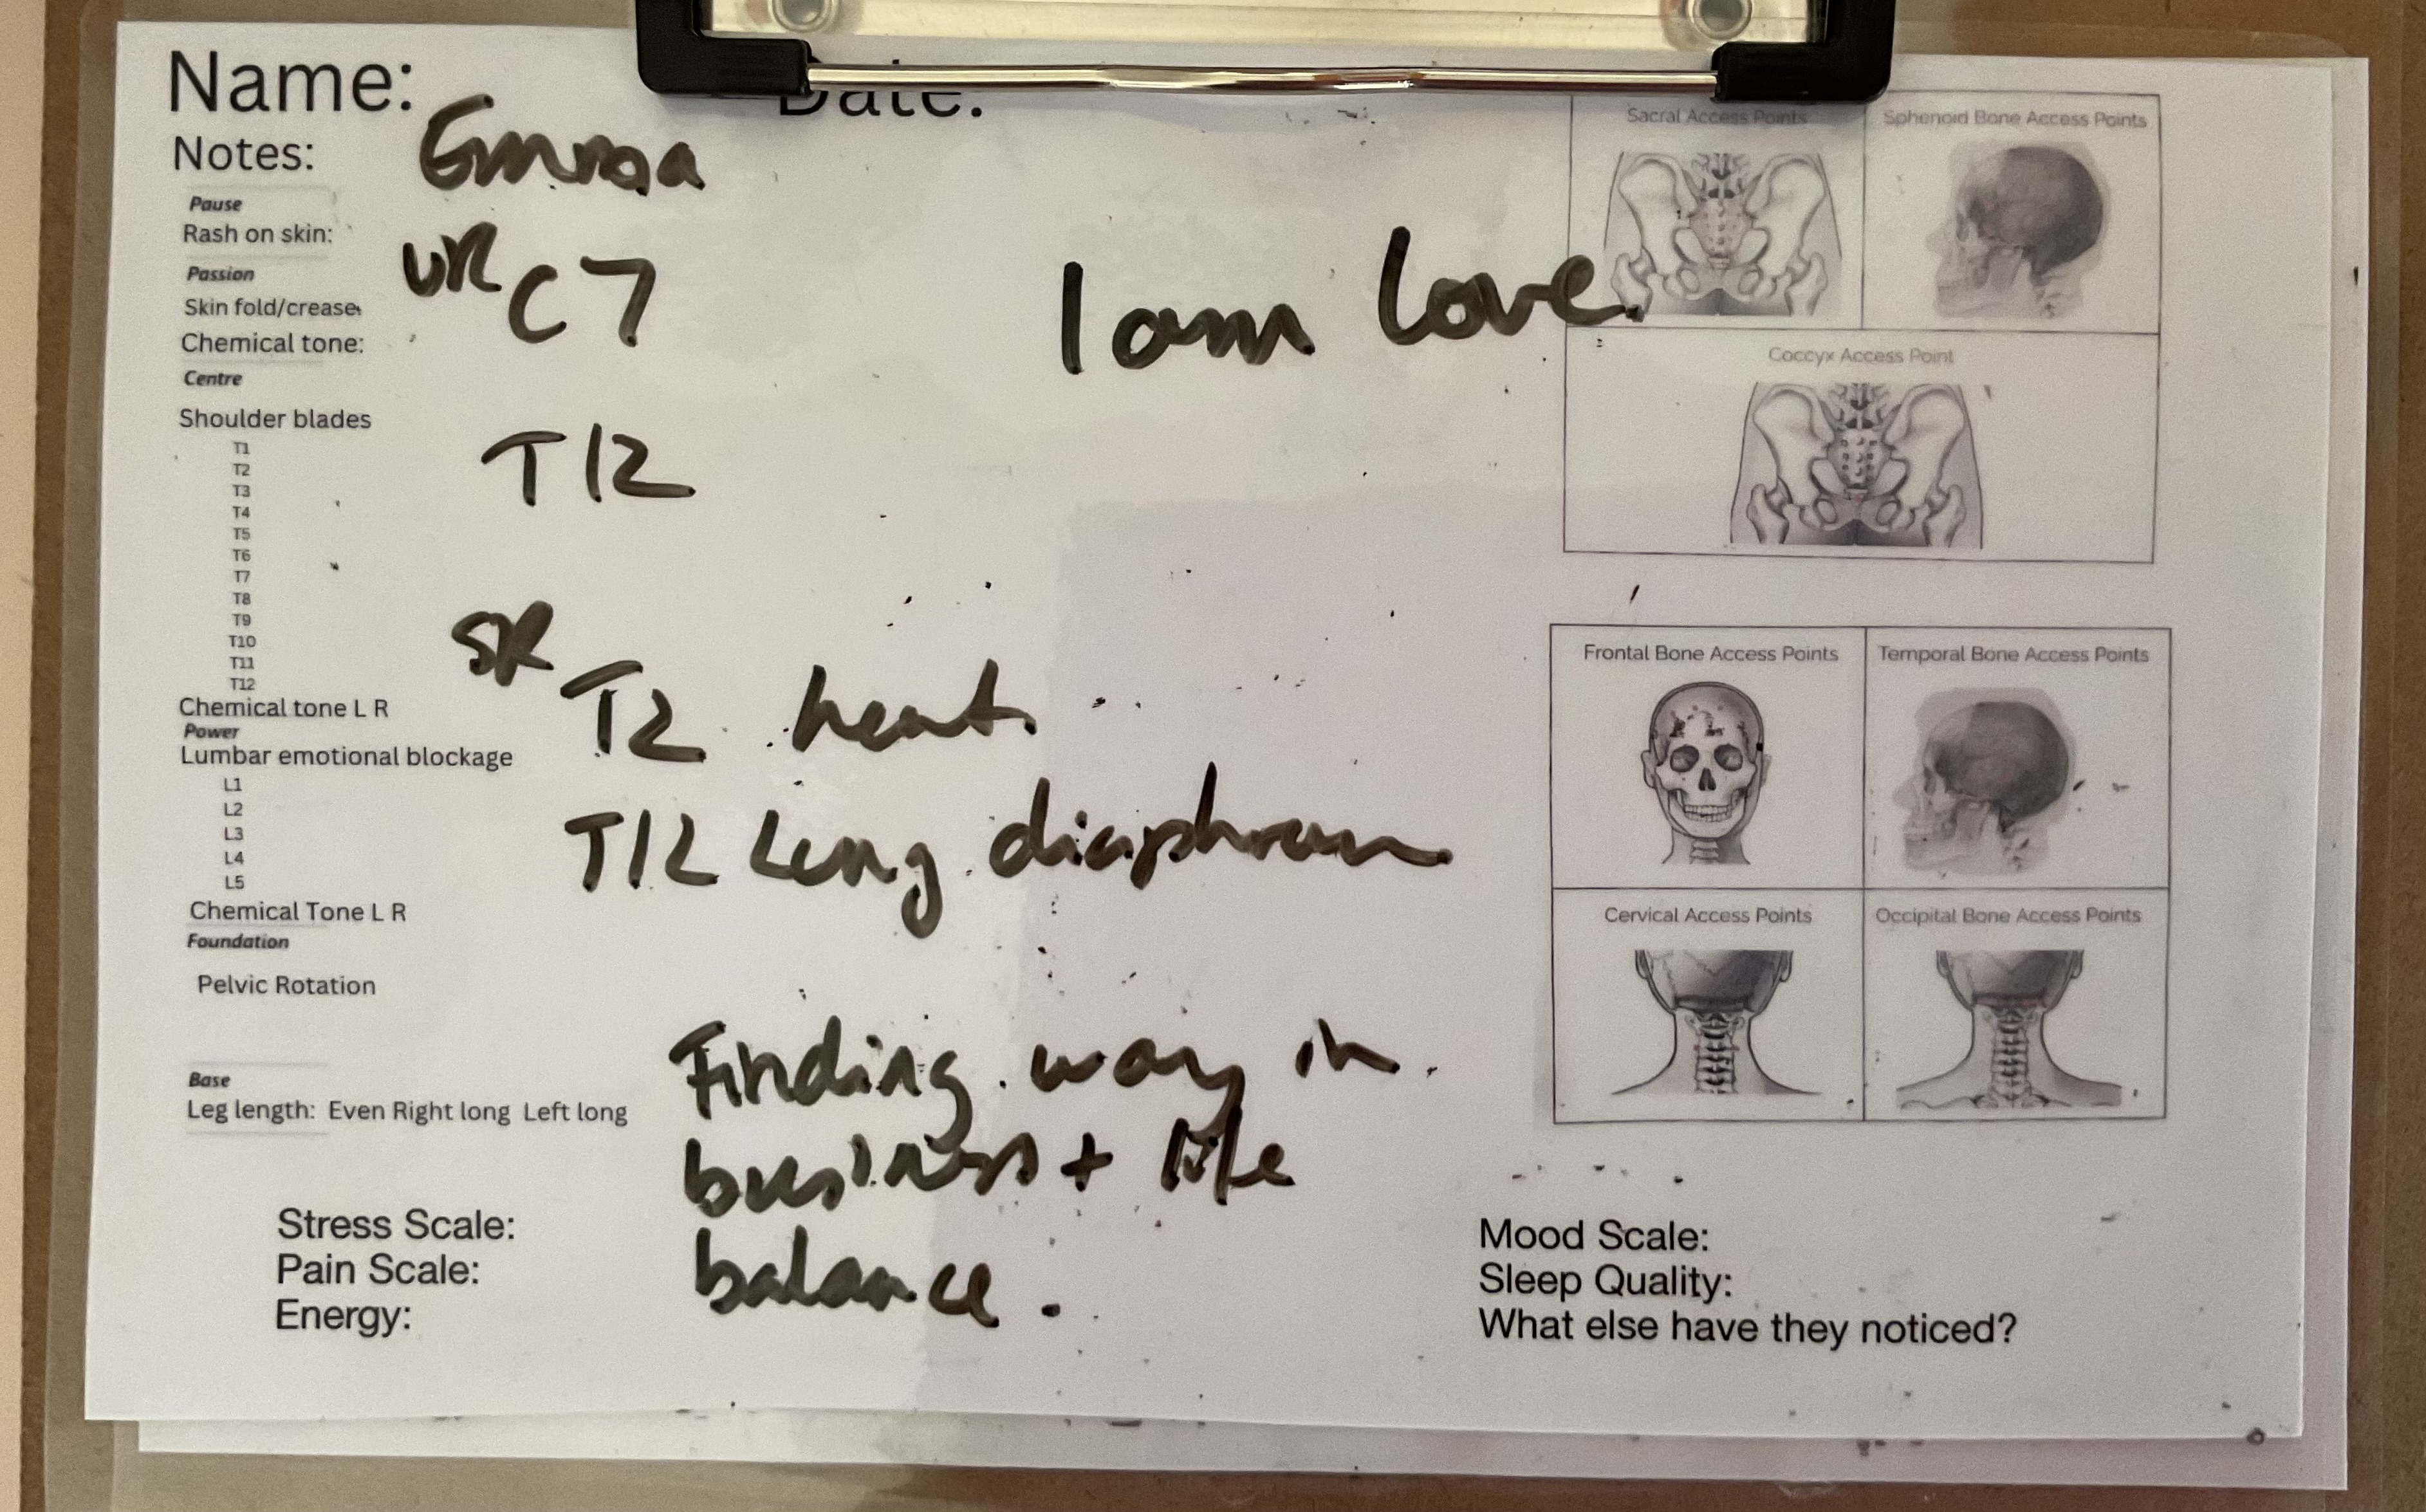 Name:
Date:
Emma
Notes:
Pause
Rash on skin:
Passion
Skin fold/crease
Chemical tone:
Centre
Shoulder blades
T1
T2
T3
T4
T5
T6
T7
T8
T9
T10
T11
T12
Chemical tone L R
Power
Lumbar emotional blockage
L1
L2
L3
L4
L5
Chemical Tone L R
Foundation
Pelvic Rotation
Base
Leg length: Even Right long Left long
Stress Scale:
Pain Scale:
Energy:
UR C7
I am love
T12
SR
T2 heart
T12 Lung diaphram
Finding way in
business + life
balance.
Sacral Access Points
Sphenoid Bone Access Points
Coccyx Access Point
Frontal Bone Access Points
Temporal Bone Access Points
Cervical Access Points
Occipital Bone Access Points
Mood Scale:
Sleep Quality:
What else have they noticed?